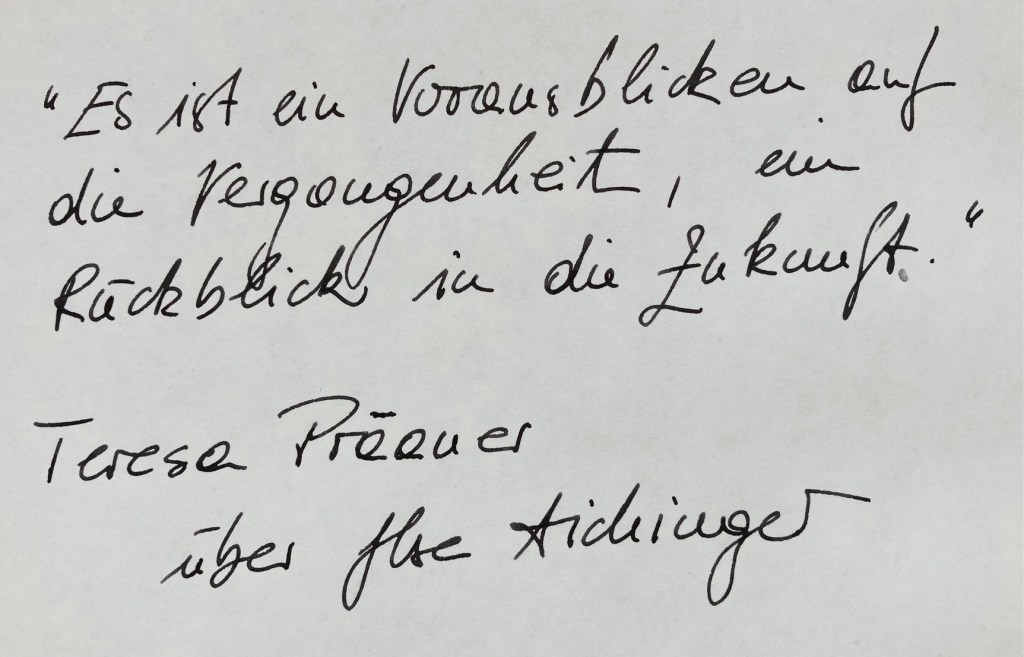 "Es ist ein Vorrausblicken auf
die Vergangenheit, ein
Rückblick in die Zukunft."
Teresa Präauer
über Ilse Aichinger